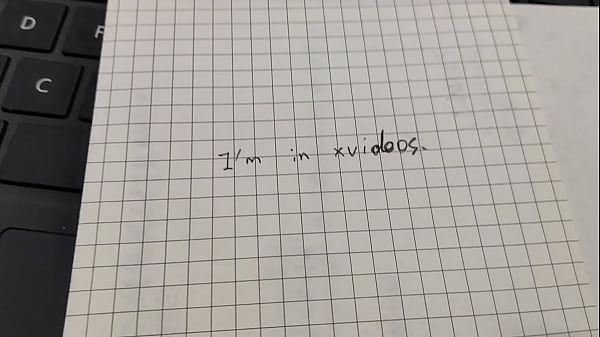 D
F
C
I'm in xvideos.